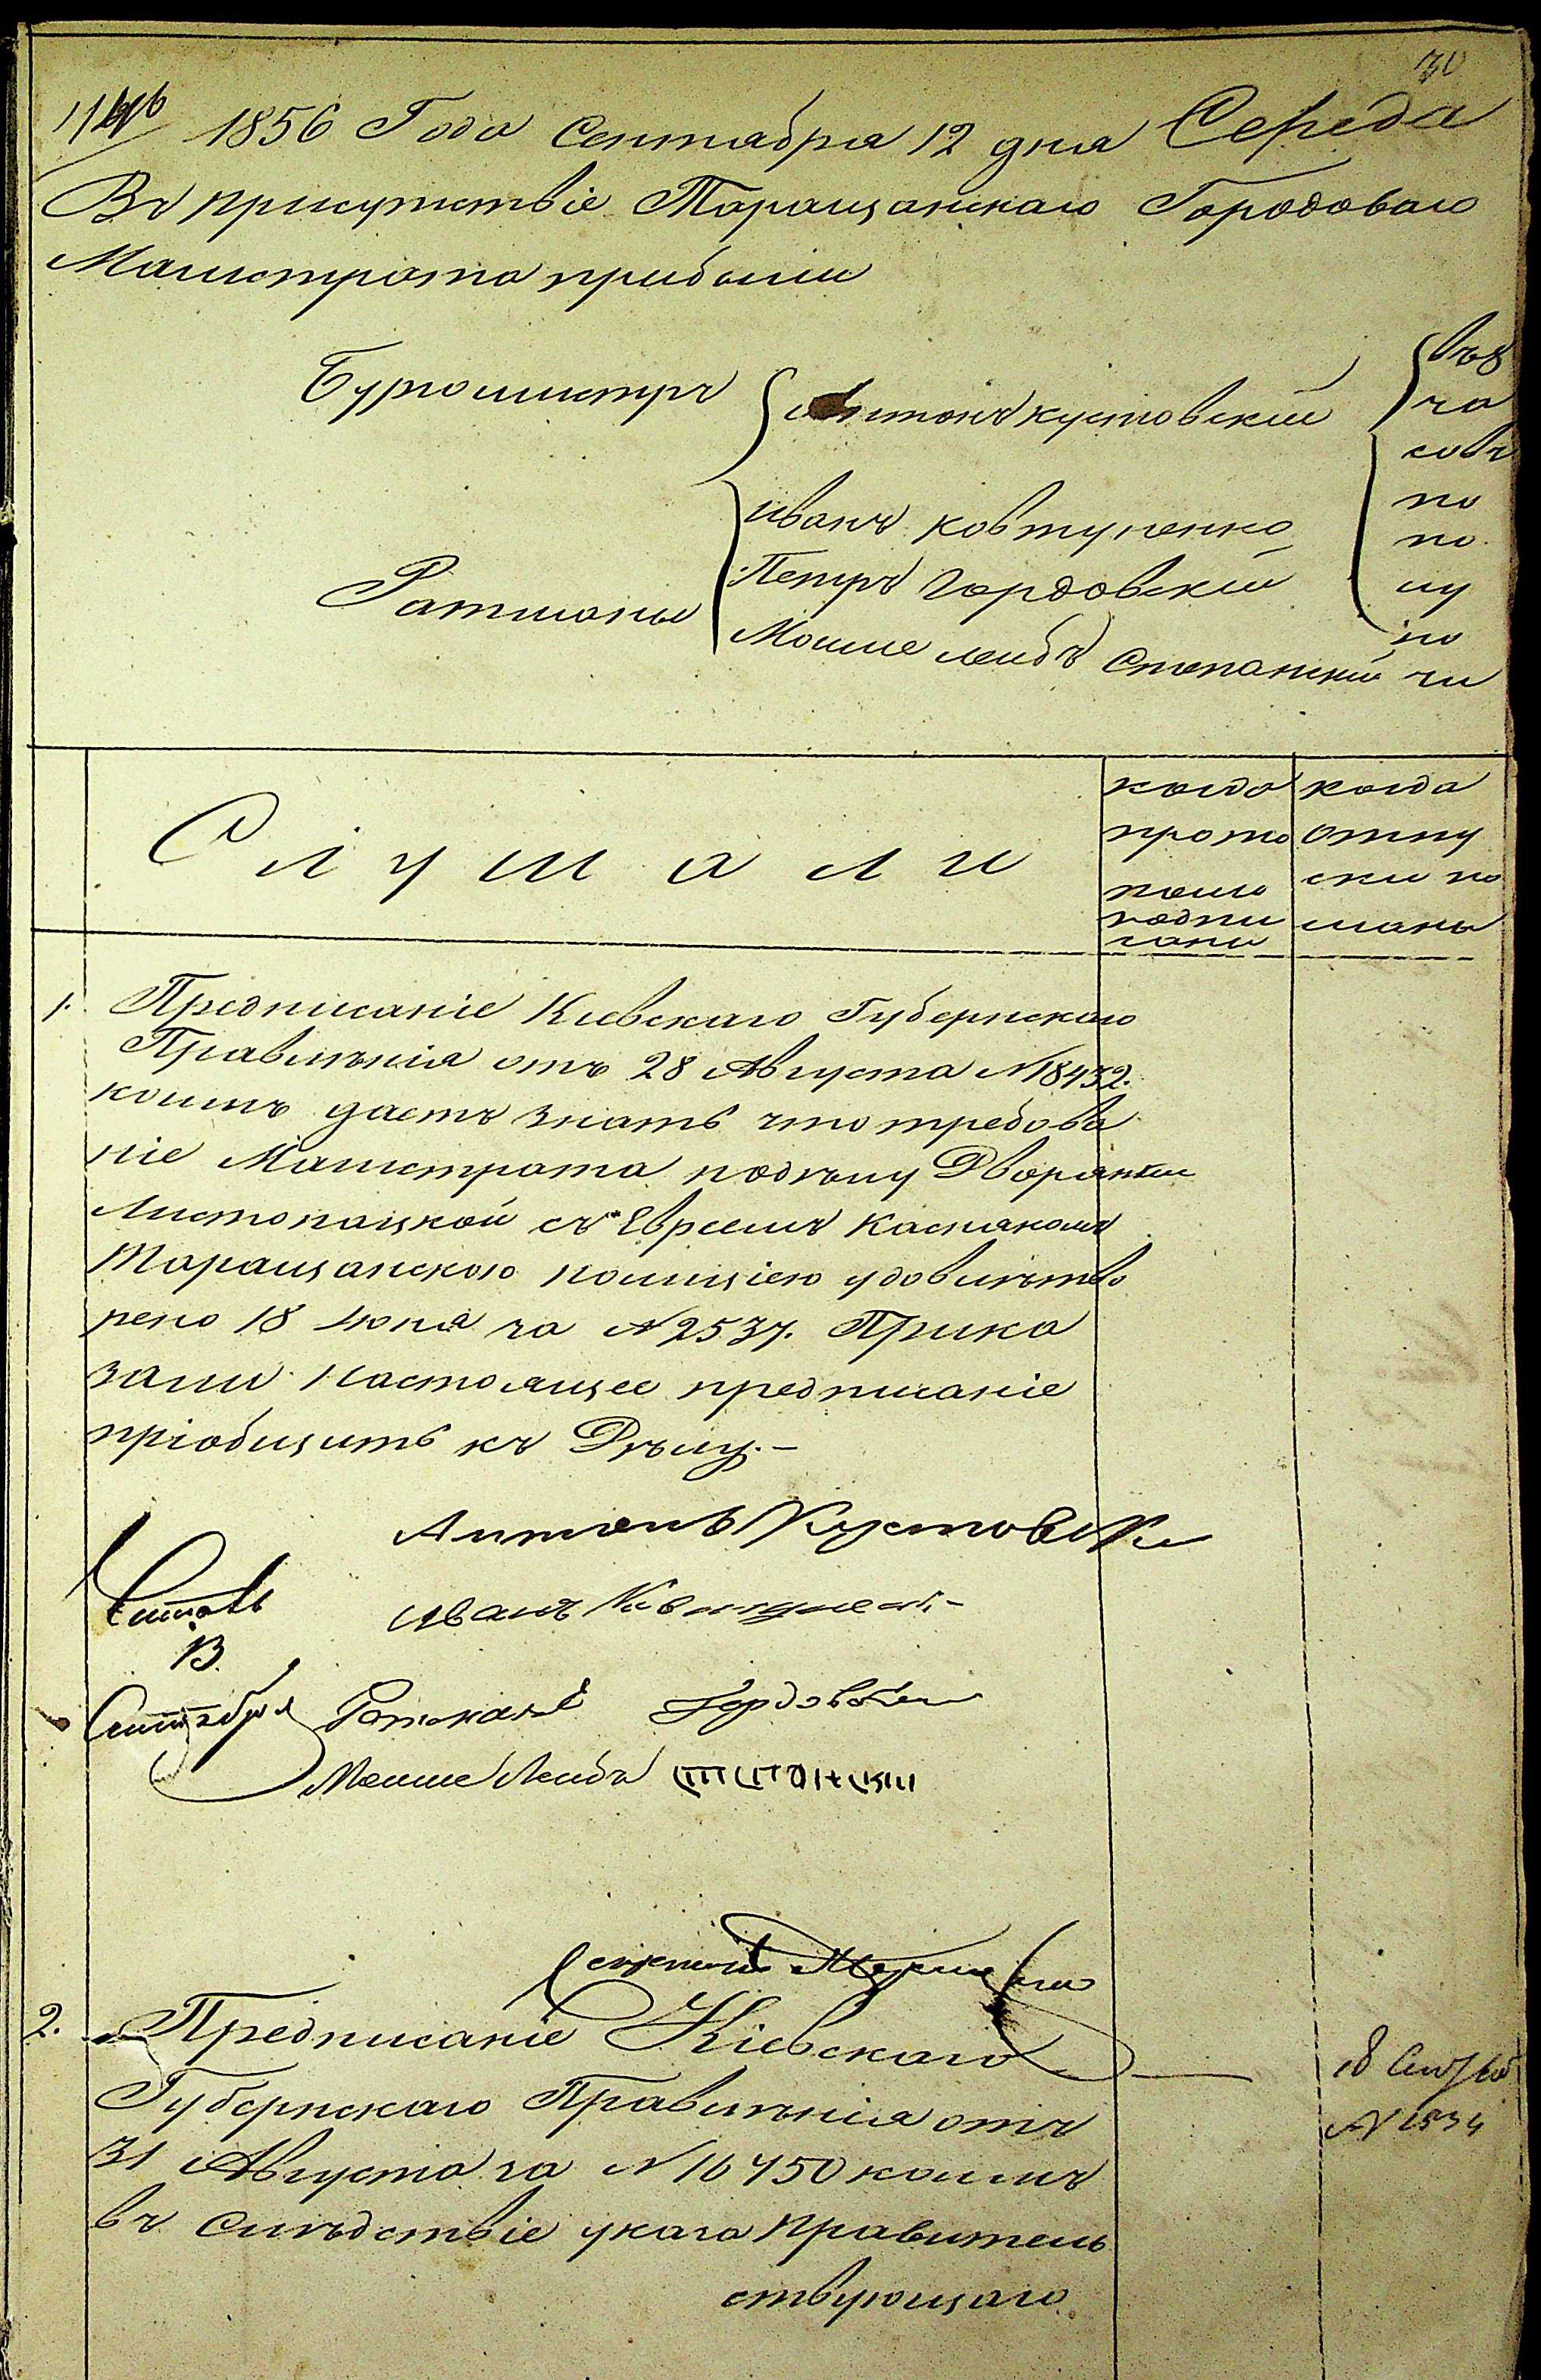 30
1856 Года Сентября 12 дня Середа
Въ присутствіе Таращанскаго Городоваго
Магистрата прибыли
Бургомистръ
Антонъ Кустовскій
въ 8
ча
совъ
по
по
лу
но
чи
Ратманы
Иванъ Ковтуненко
Петръ Гордовскій
Мошко Лейбъ Степанскій
Слушали
когда
прото
колы
подпи
саны
когда
отпу
ски по
сланы
1. Предписаніе Кіевскаго Губернскаго
Правленія отъ 28 Августа N 18432.
коимъ даетъ знать что требова
ніе Магистрата подѣлу Дворянки
Листопацкой съ Евреемъ Каспакомъ
Таращанскою полиціею удовлѣтво
рено 18 Іюня за N 2537. Прика
зали Настоящее предписаніе
пріобщить къ Дѣлу.-
Антонъ Кустовски
Иванъ
13
Сентября
Ратманъ Гордовскій
Мошко Лейбъ
2. Предписаніе Кіевскаго
Губернскаго Правленія отъ
31 Августа за N 16450 коимъ
въ слѣдствіе указа Правитель
ствующаго
18 Сентяб
N 1534